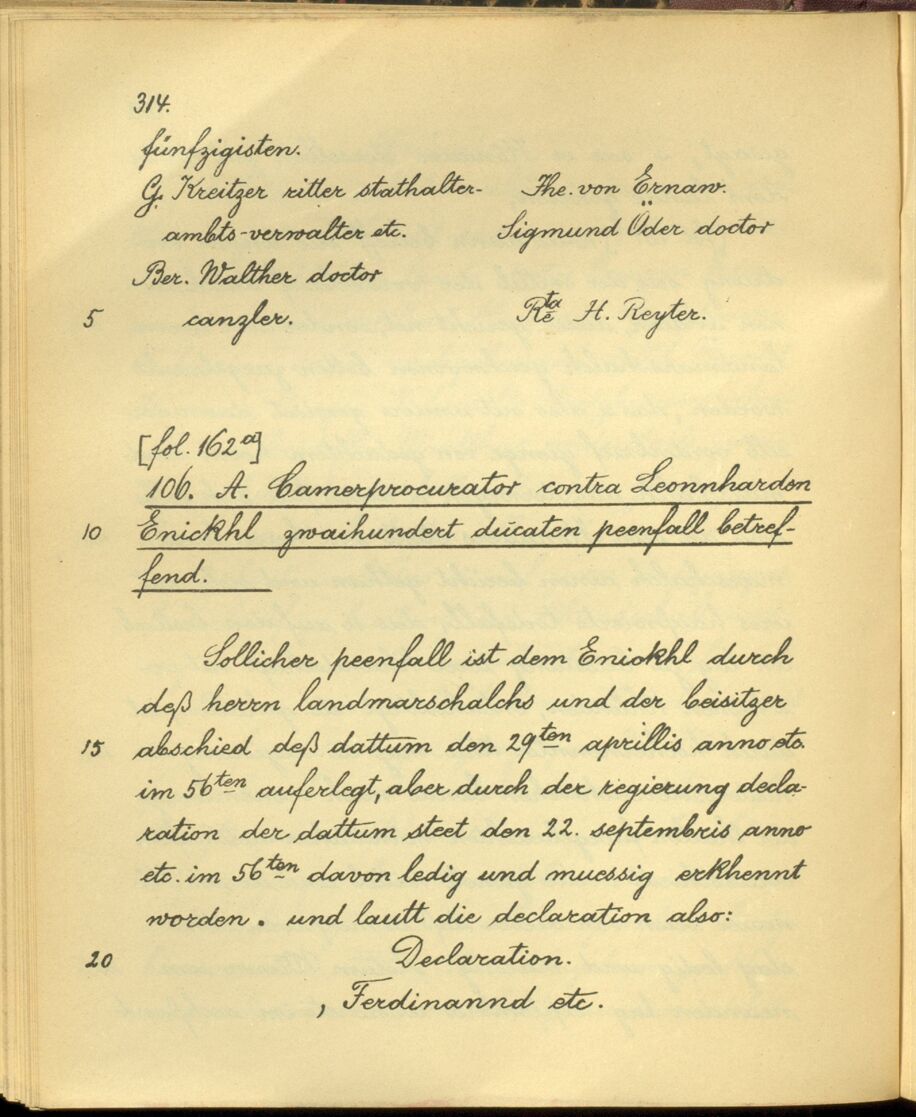 314.
fünfzigisten.
G. Kreitzer ritter stathalter- The. von Ernaw.
ambts-verwalter etc. Sigmund Öder doctor
Ber. Walther doctor
5 canzler. Rta H. Reyter.
[fol. 162a]
106. A. Camerprocurator contra Leonnharden
10 Enickhl zwaihundert ducaten peenfall betref-
fend.
Sollicher peenfall ist dem Enickhl durch
deß herrn landmarschalchs und der beisitzer
15 abschied deß dattum den 29ten aprillis anno etc.
im 56ten auferlegt, aber durch der regierung decla-
ration der dattum steet den 22. septembris anno
etc. im 56ten davon ledig und muessig erkhennt
worden. und lautt die declaration also:
20 Declaration.
, Ferdinannd etc.